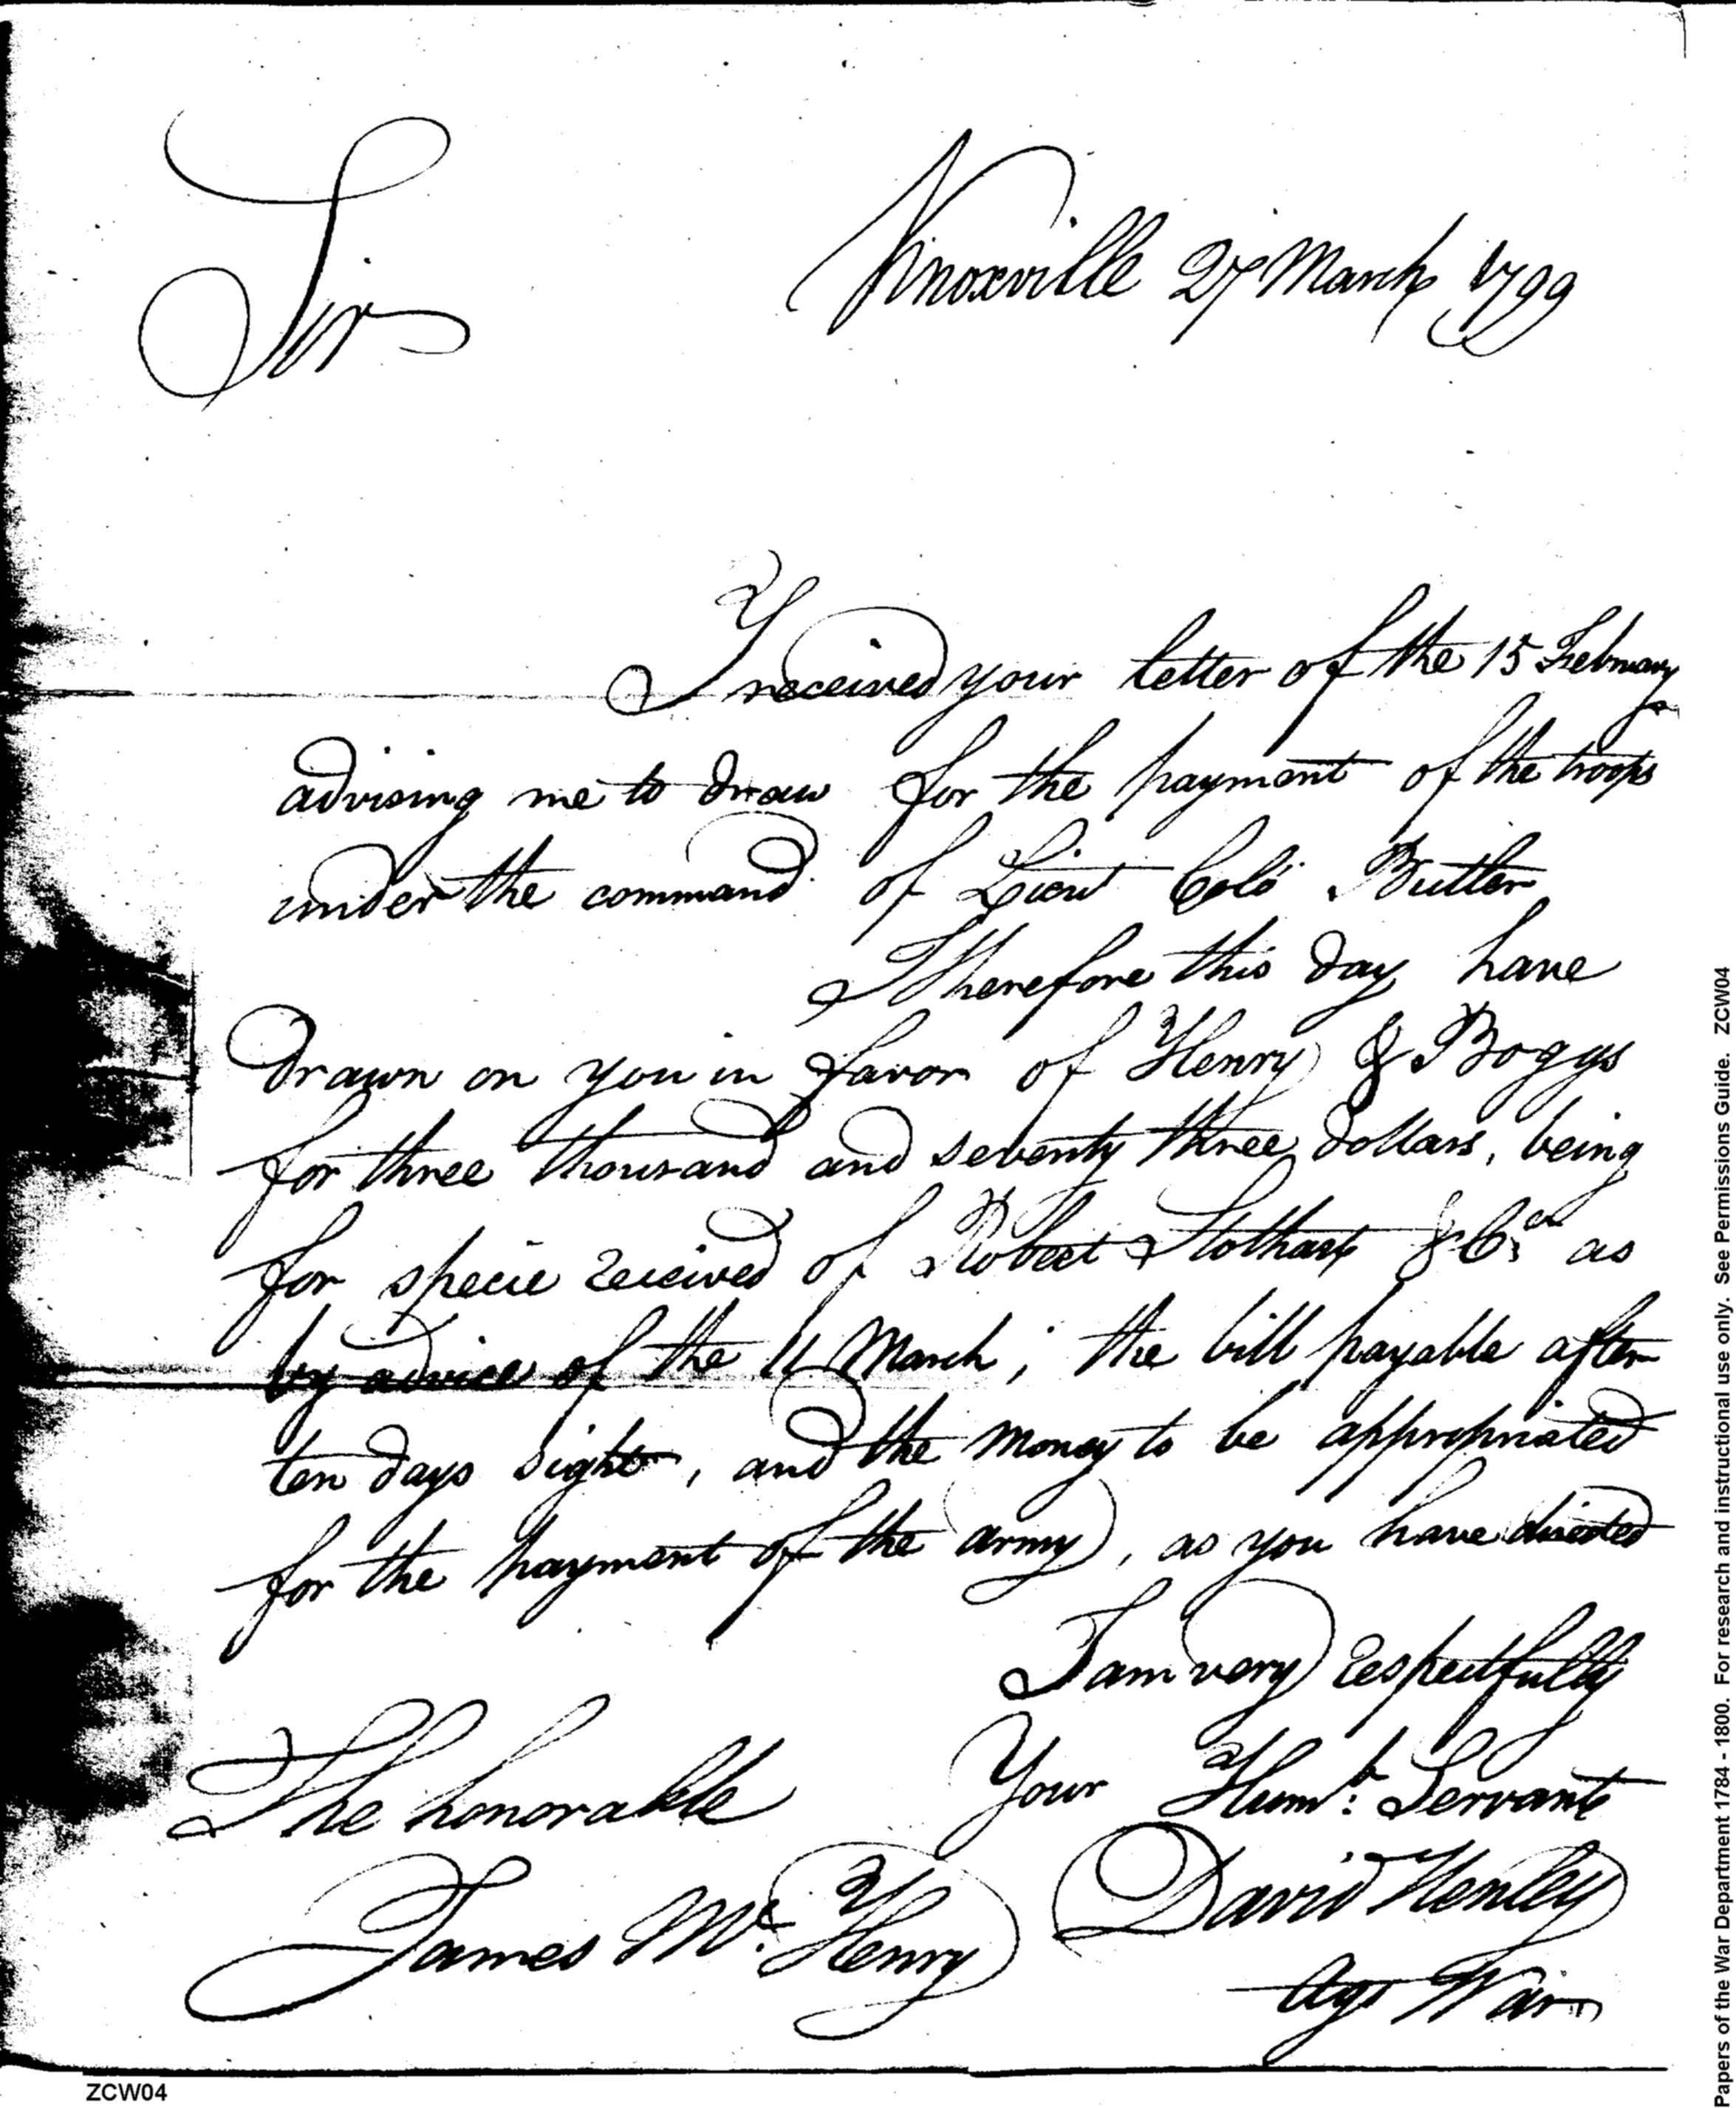 Sir
Knoxville 27 March 1799
I received your letter of the 15 February
advising me to draw for the payment of the troops
under the command of Lieut Colo Butler
I therefore this day have
drawn on you in favor of Henry & Boggs
for three thousand and seventy three dollars, being
for specie received of Robert Stothart & Co: as
by advice of the 11 March; the bill payable after
ten days sight, and the money to be appropriated
for the payment of the army, as you have directed
I am very respectfully
Your Humb: Servant
The honorable
James Mc. Henry
David Henley
Agt War
ZCW04
Papers of the War Department 1784 - 1800. For research and instructional use only. See Permissions Guide. ZCW04